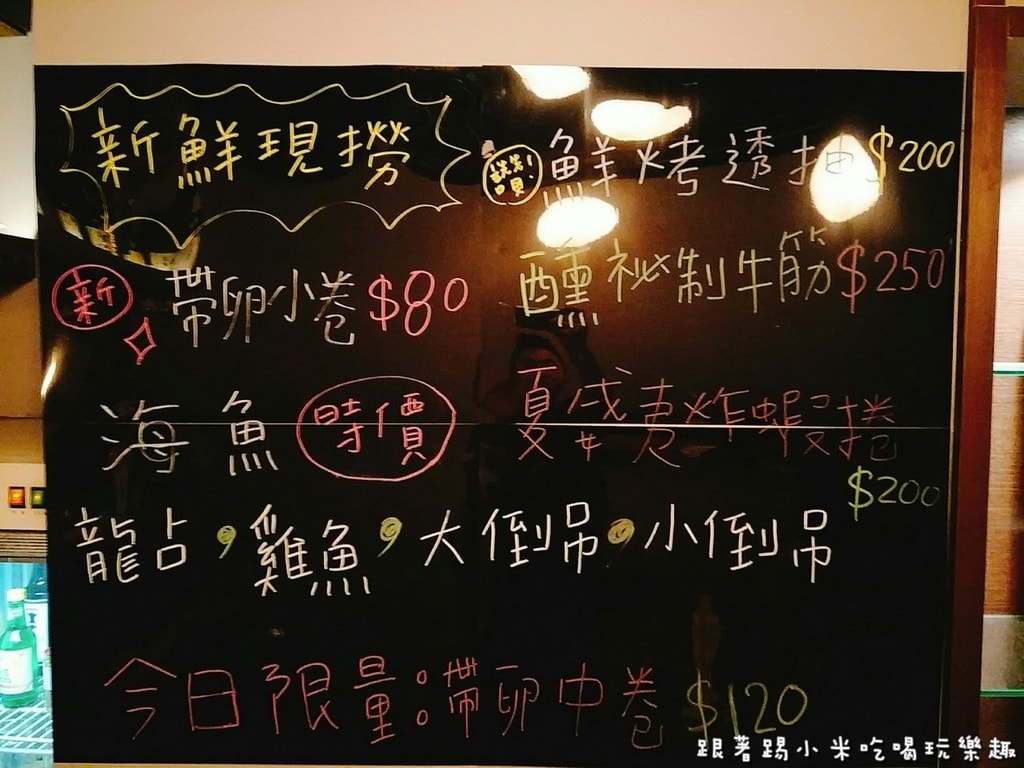 新鮮現撈
讚! 鮮烤透抽 $200
新 帶卵小卷 $80
醺祕制牛筋 $250
海魚 時價
夏威夷炸蝦捲
$200
龍占，雞魚，大倒吊，小倒吊
今日限量：帶卵中卷 $120
跟著踢小米吃喝玩樂趣